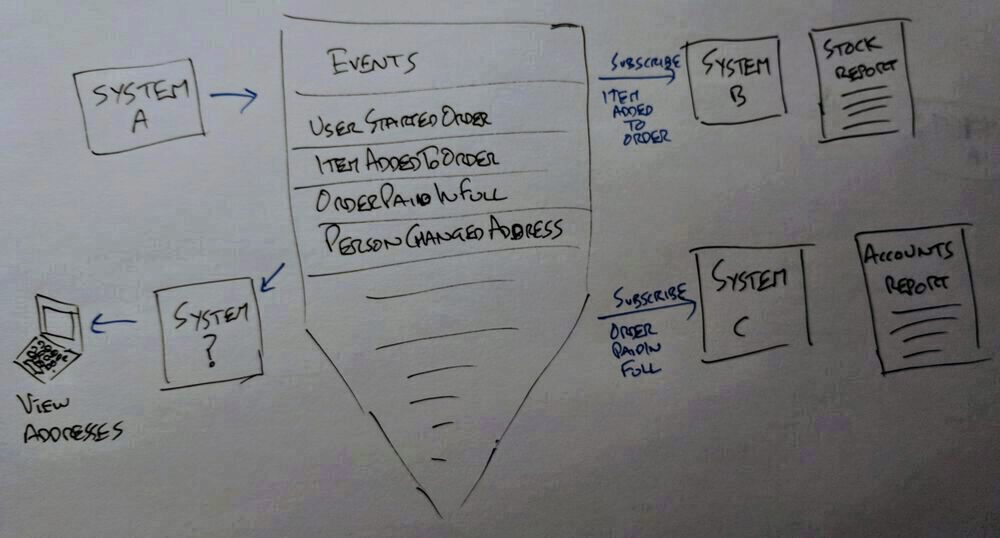 EVENTS
USERSTARTEDORDER
ITEMADDEDTOORDER
ORDERPAIDINFULL
PERSONCHANGEDADDRESS
SYSTEM
A
SUBSCRIBE
ITEM
ADDED
TO
ORDER
SYSTEM
B
STOCK
REPORT
SUBSCRIBE
ORDER
PAIDIN
FULL
SYSTEM
C
ACCOUNTS
REPORT
SYSTEM
?
VIEW
ADDRESSES